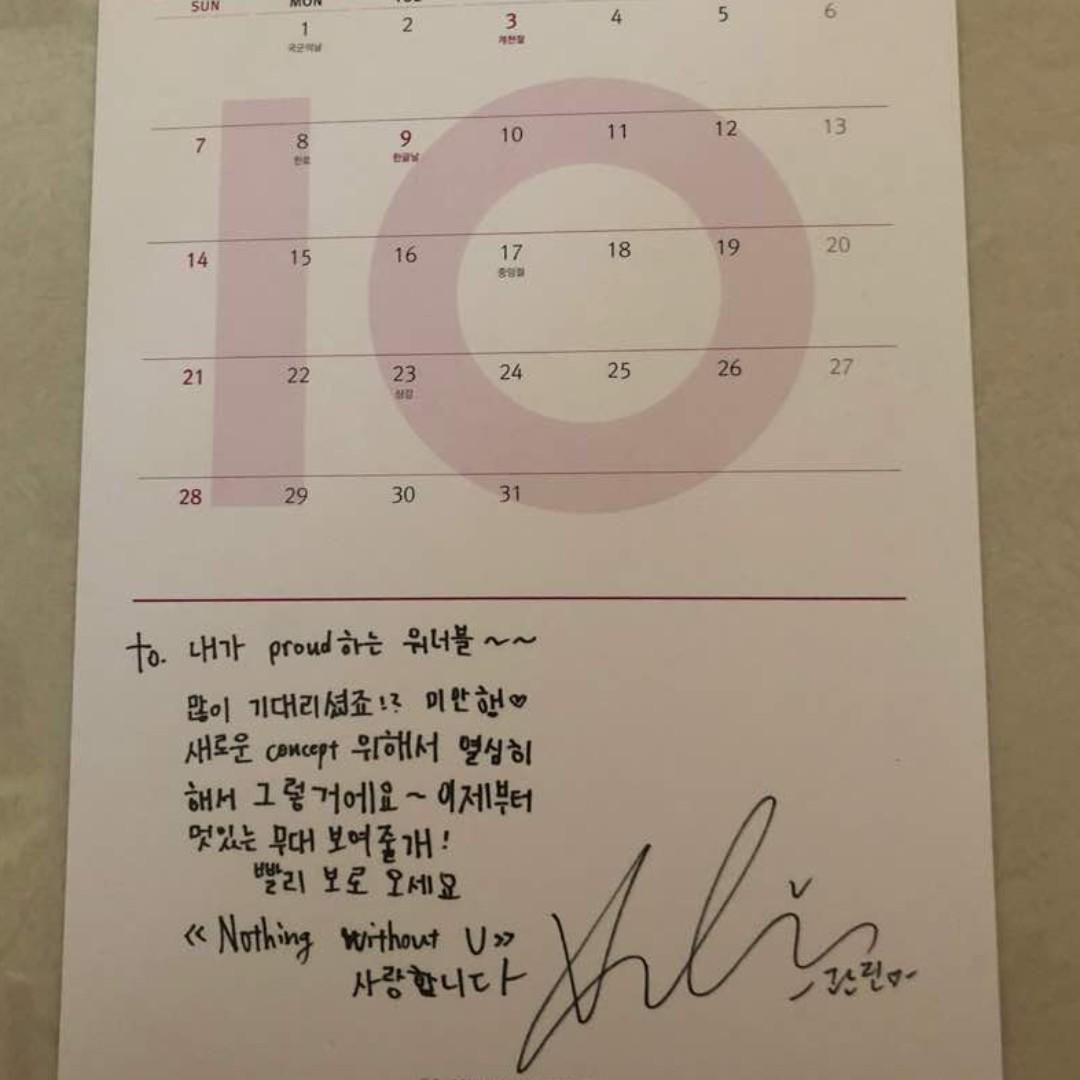 SUN MON TUE
1 2 3 4 5 6
국군의날 개천절
7 8 9 10 11 12 13
한로 한글날
14 15 16 17 18 19 20
중양절
21 22 23 24 25 26 27
상강
28 29 30 31
10
to. 내가 proud하는 워너블~~
많이 기대리셨죠!? 미안해♡
새로운 concept 위해서 열심히
해서 그렇거에요~ 이제부터
멋있는 무대 보여줄개!
빨리 보로 오세요
《Nothing without U》
사랑합니다
관린♡